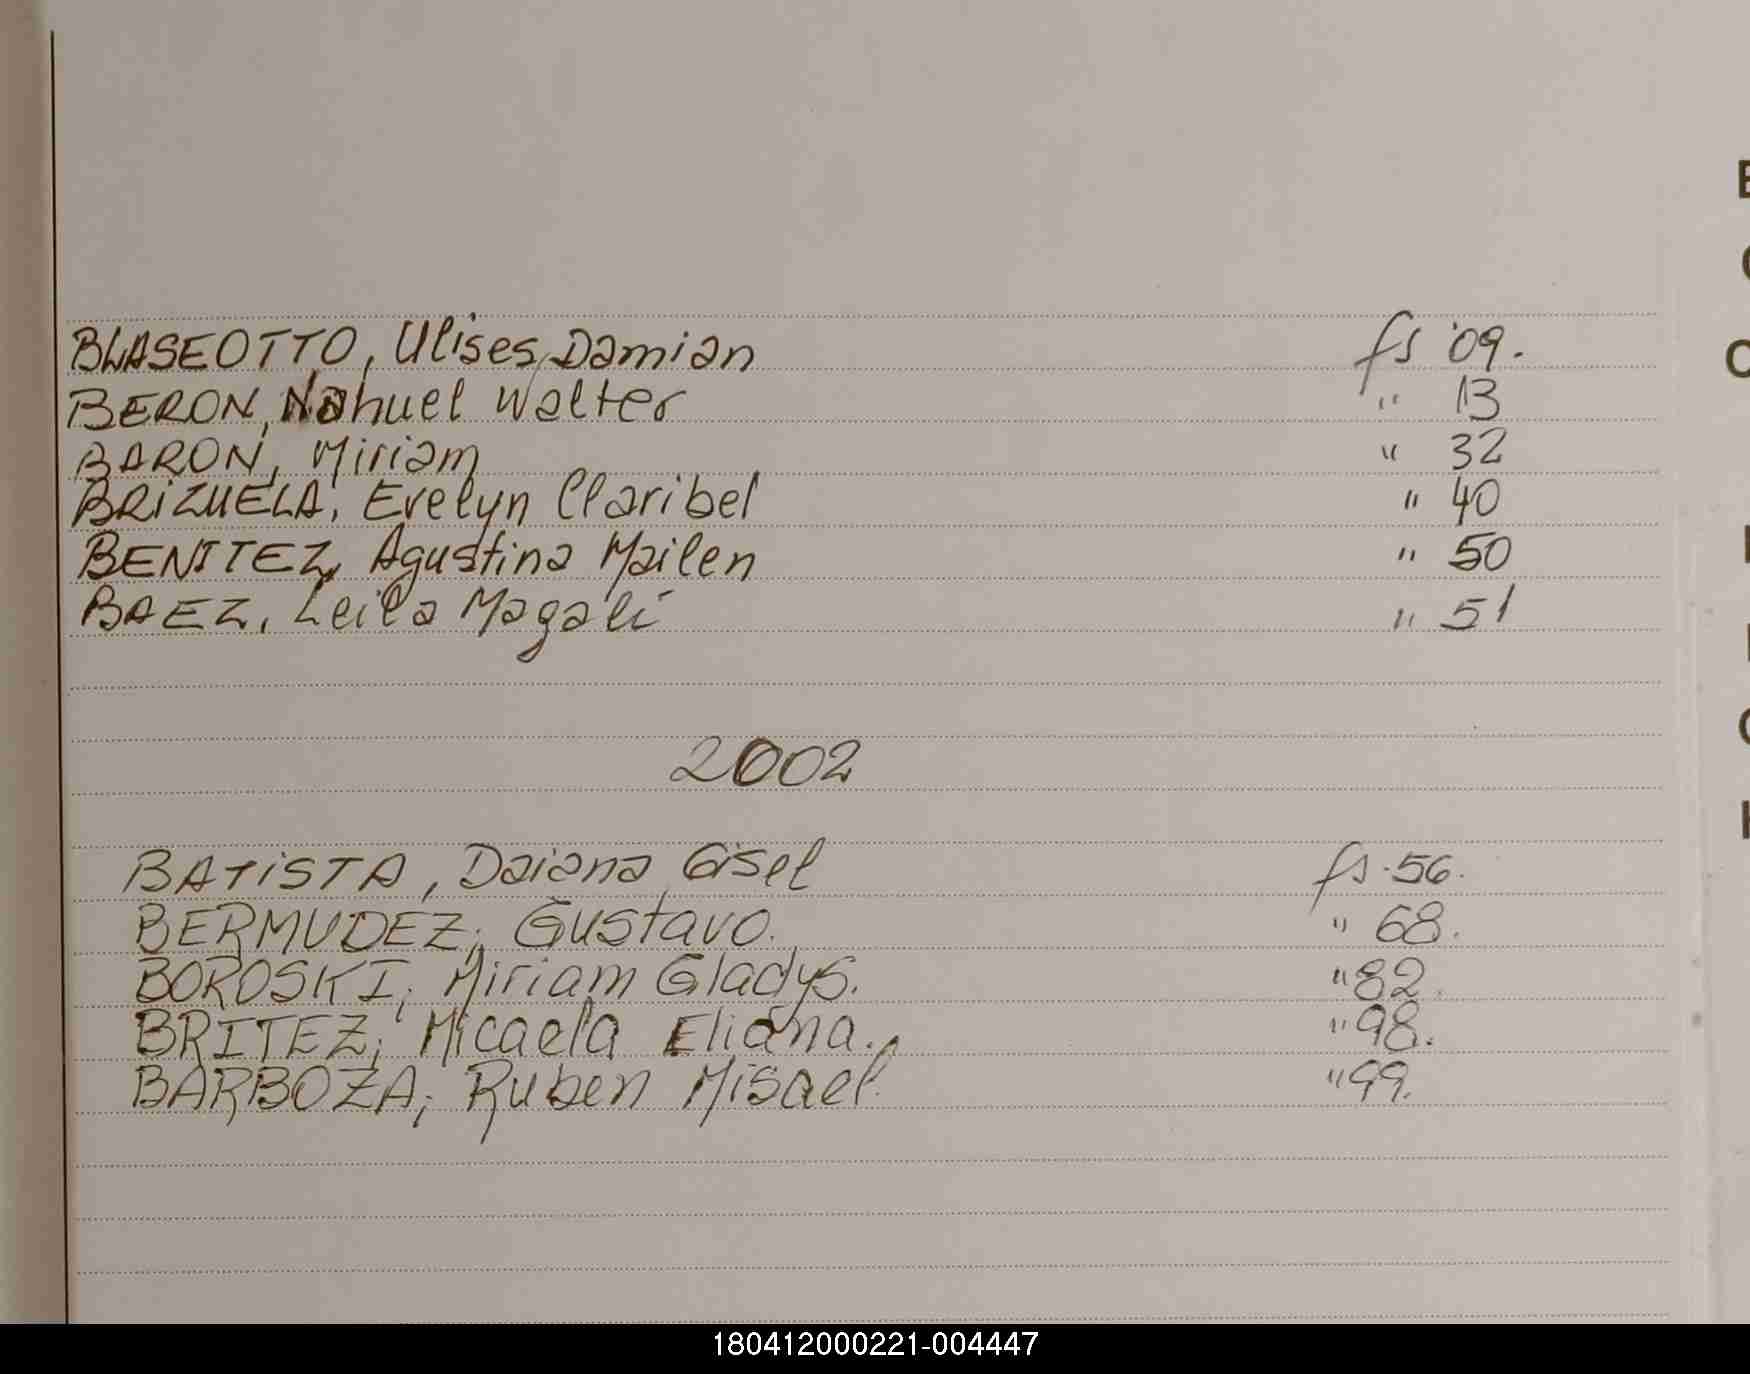 BLASEOTTO, Ulises Damian fs 09.
BERON, Nahuel Walter " 13
BARON, Miriam " 32
BRiZUELA, Evelyn Claribel " 40
BENITEZ, Agustina Mailen " 50
BAEZ, Leila Magali " 51
2002
BATiSTA, Daiana Gisel fs. 56.
BERMUDEZ, Gustavo. " 68.
BOROSKI, Miriam Gladys. " 82.
BRITEZ, Micaela Eliana. " 98.
BARBOZA, Ruben Misael. " 99.
180412000221-004447